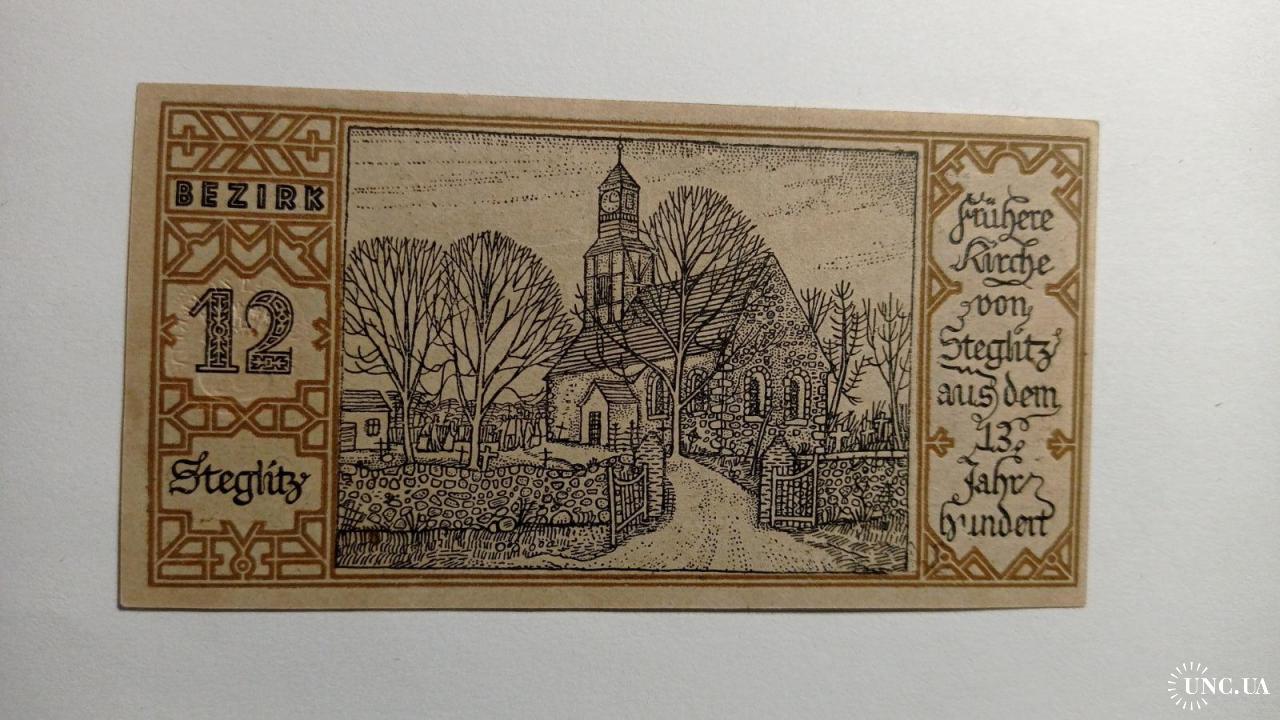 BEZIRK
12
Steglitz
Frühere
Kirche
von
Steglitz
aus dem
13.
Jahr-
hundert
UNC.UA